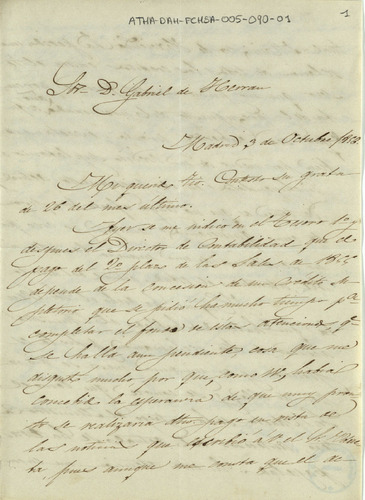 ATHA-DAH-FCHSA-005-090-01
1
Sr. D. Gabriel de Herran
Madrid 3 de Octubre
Mi querido Tio. Contesto su grata
de 26 del mes ultimo.
Ayer se me indicó en el Tesoro y
despues el Director de Contabilidad que el
pago del 2º plazo de las Salas de
depende de la concesion de un Credito su
pletorio que se pidió ha mucho tiempo pª
completar el fondo de estas atenciones qe
se halla aun pendiente, cosa que me
disgustó mucho por que, como V, habia
concebido la esperanza de que muy pron
to se realizaria dicho pago en vista de
las noticias que escribió a V. el Sr.
pues aunque me consta que el de